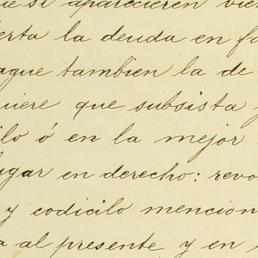 que si aparecieren vie
erta la deuda en fa
ague tambien la de
uiere que subsista y
ilo ó en la mejor
ugar en derecho: revo
y codicilo mencion
a al presente y en